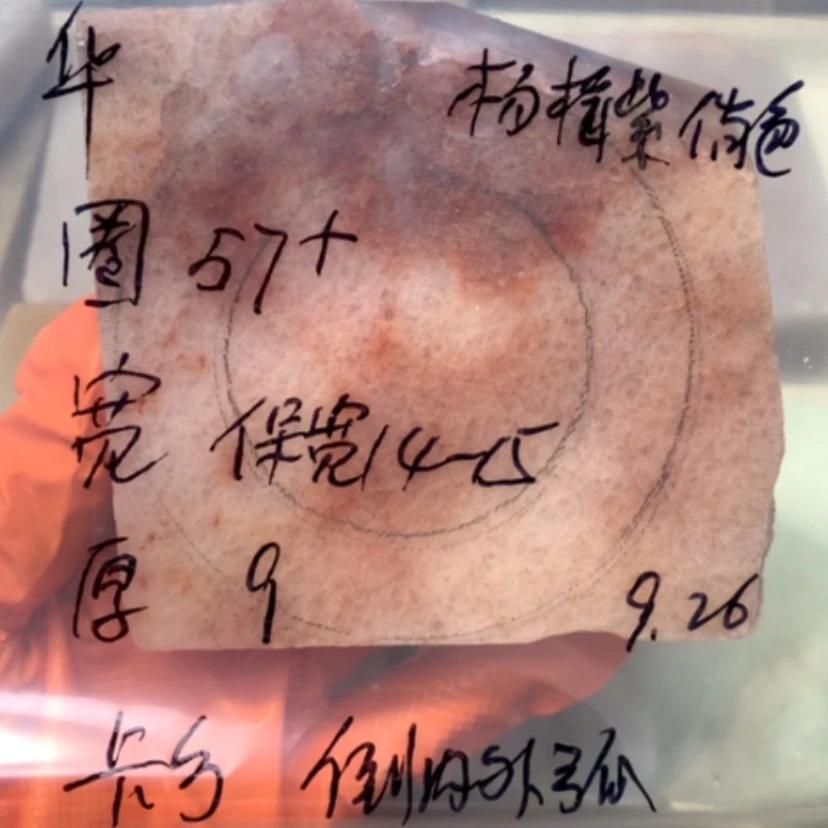 华
杨梅紫俏色
圈 57+
宽 保宽14-15
厚 9
9.26
卡弓 倒内外弧